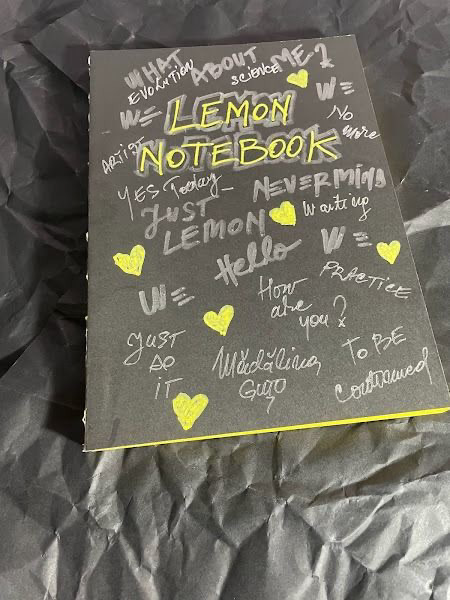 WHAT ABOUT ME?
EVOLUTION SCIENCE
WE LEMON WE
NOTEBOOK No More
ARTIST
YES Today_ NEVERMIND
JUST Wait up
LEMON WE
Hello
WE PRACTICE
How
are
you?
JUST
DO
IT
Mădălina
TO BE
Continued